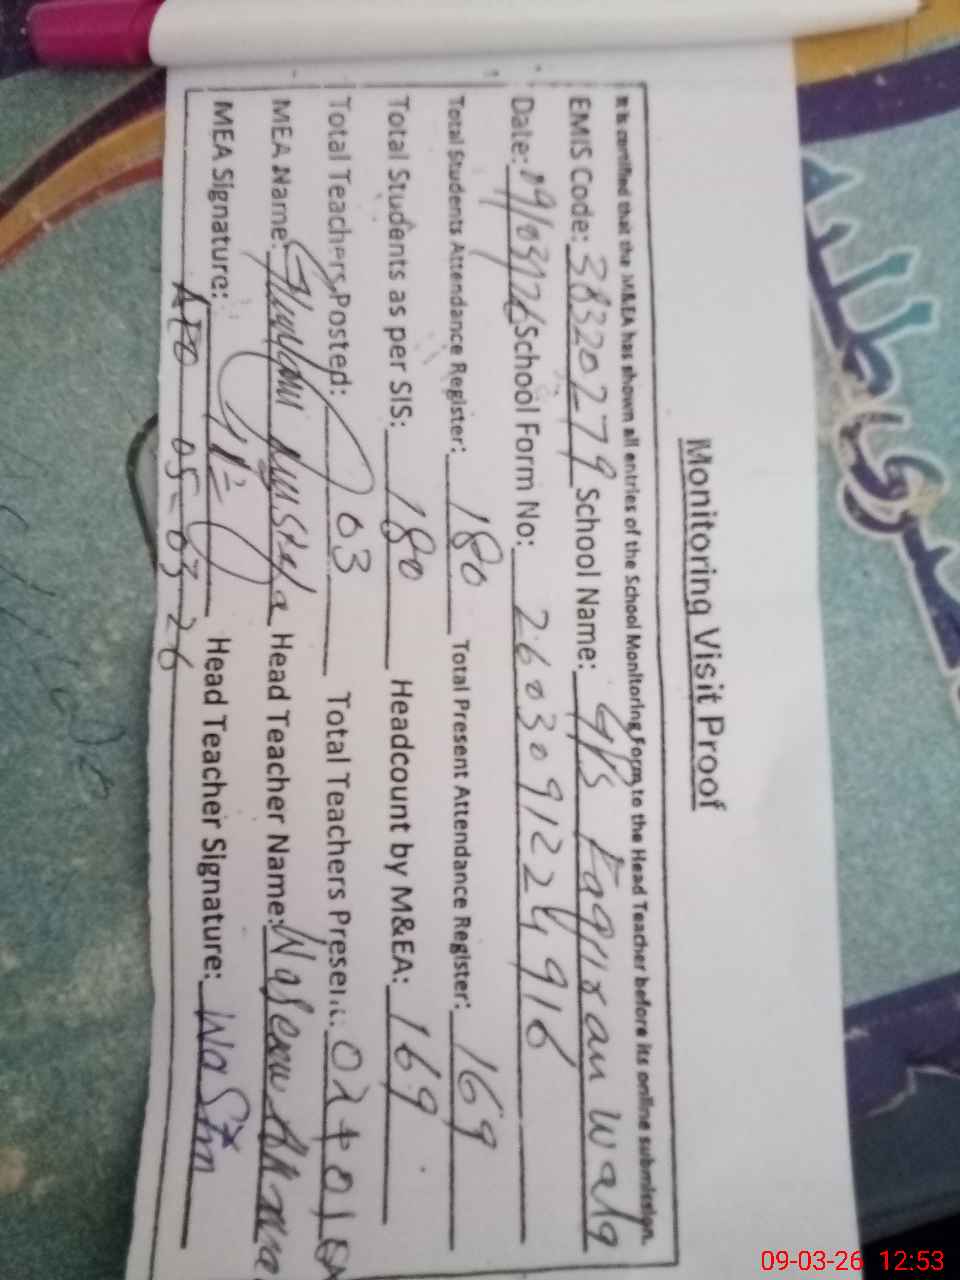 Monitoring Visit Proof
It is certified that the M&EA has shown all entries of the School Monitoring Form to the Head Teacher before its online submission.
EMIS Code: 38320279 School Name: GPS Faqiran Wala
Date: 09/03/26 School Form No: 2603091224916
Total Students Attendance Register: 180 Total Present Attendance Register: 169
Total Students as per SIS: 180 Headcount by M&EA: 169
Total Teachers Posted: 03 Total Teachers Present: 02+01
MEA Name: Ghulam Mustafa Head Teacher Name: Waseem
MEA Signature: Head Teacher Signature: Wasim
AEO 05-03-26
09-03-26 12:53